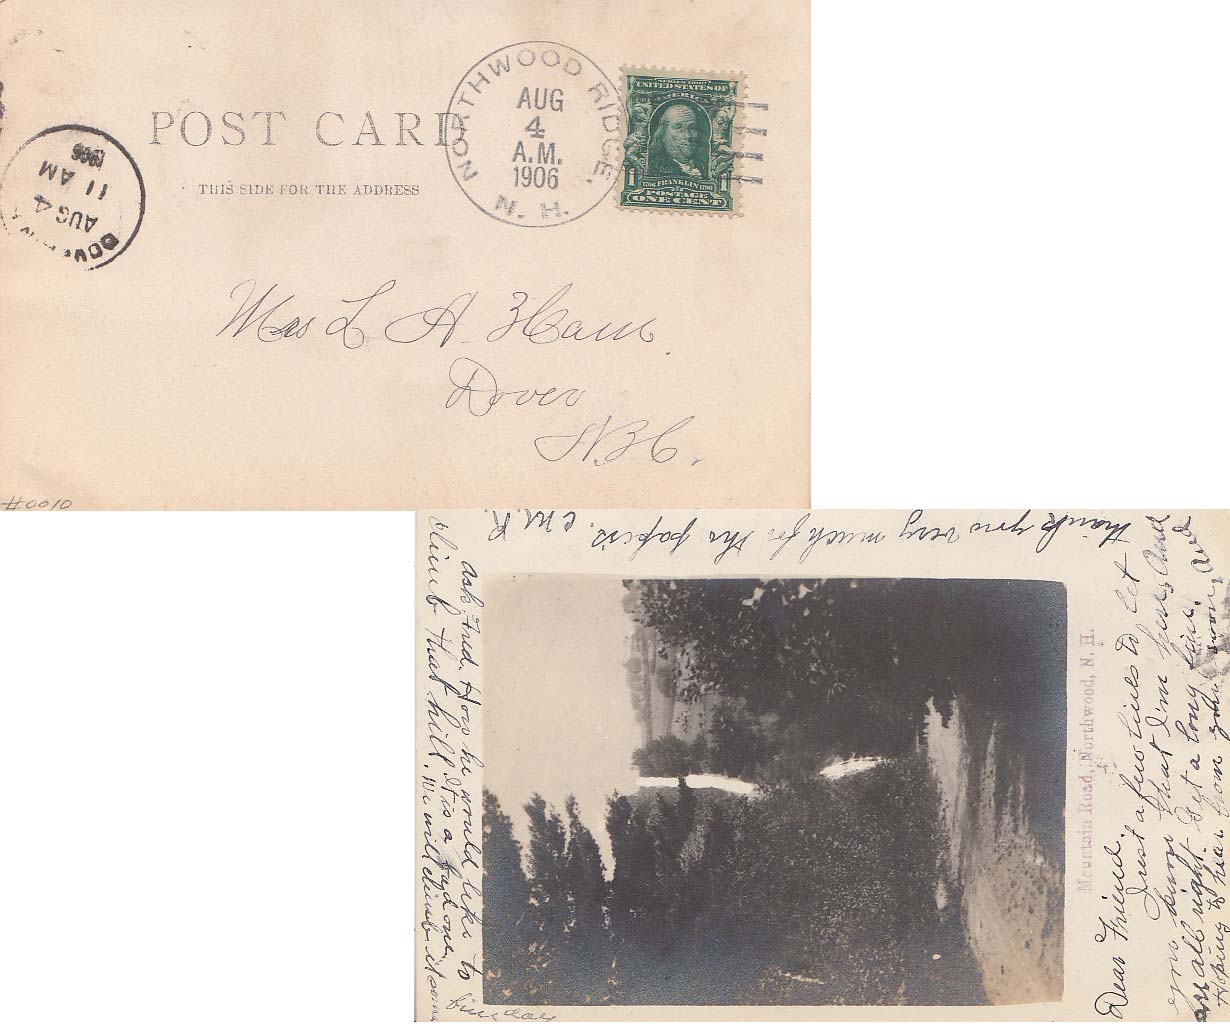 POST CARD
THIS SIDE FOR THE ADDRESS
NORTHWOOD RIDGE
AUG
4
A.M.
1906
N. H.
SERIES 1902
UNITED STATES OF
AMERICA
1 1706 FRANKLIN 1790 1
POSTAGE
ONE CENT
AUG 4
11 AM
1906
Mrs L A. Ham
Dover
N.H.
#0010
Mountain Road, Northwood, N. H.
Dear Friend.
Just a few lines to let
you know that I'm here and
am all right. Got a long fine.
Hoping to hear from you soon, and
thank you very much for the papers. E M. R.
ask Fred. How he would like to
climb that hill. It is a hard one.
we will climb it some
Sunday